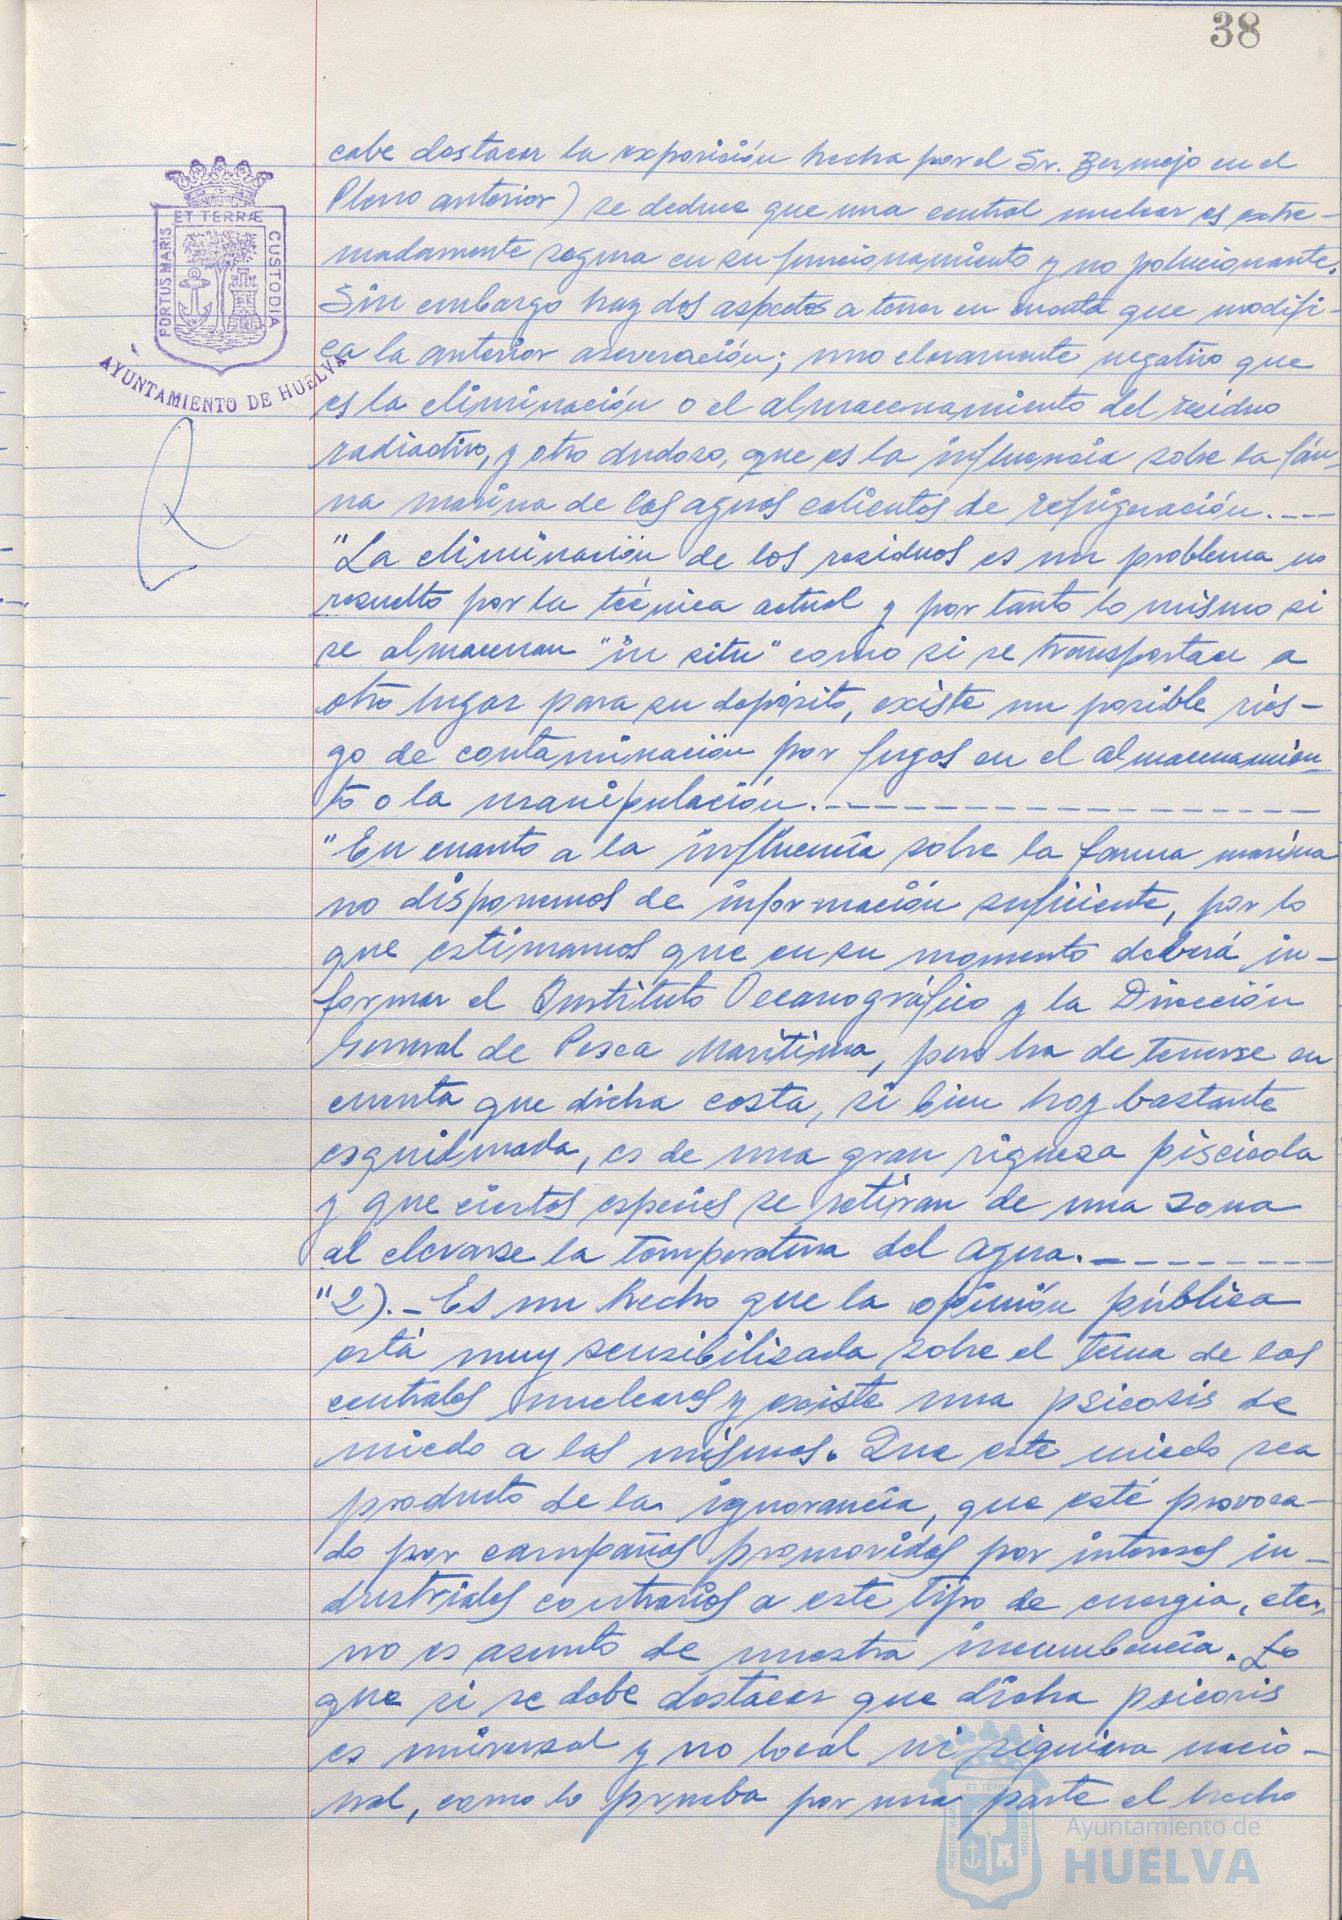 38
cabe destacar la exposición hecha por el Sr. Bermejo en el
Pleno anterior) se deduce que una central nuclear es extre-
madamente segura en su funcionamiento y no polucionante.
Sin embargo hay dos aspectos a tener en cuenta que modifi-
ca la anterior aseveración; uno claramente negativo que
es la eliminación o el almacenamiento del residuo
radiactivo, y otro dudoso, que es la influencia sobre la fáu-
na marina de las aguas calientes de refrigeración.---
"La eliminación de los residuos es un problema no
resuelto por la técnica actual y por tanto lo mismo si
se almacenan "in situ" como si se transportan a
otro lugar para su depósito, existe un posible ries-
go de contaminación por fugas en el almacenamien-
to o la manipulación.-------------------
"En cuanto a la influencia sobre la fauna marina
no disponemos de información suficiente, por lo
que estimamos que en su momento deberá in-
formar el Instituto Oceanográfico y la Dirección
General de Pesca Marítima, pero ha de tenerse en
cuenta que dicha costa, si bien hoy bastante
esquilmada, es de una gran riqueza piscícola
y que ciertas especies se retiran de una zona
al elevarse la temperatura del agua.---------
"2).-Es un hecho que la opinión pública
está muy sensibilizada sobre el tema de las
centrales nucleares y existe una psicosis de
miedo a las mismas. Que este miedo sea
producto de la ignorancia, que esté provoca-
do por campañas promovidas por intereses in-
dustriales contrarios a este tipo de energia, etc.,
no es asunto de nuestra incumbencia. Lo
que si se debe destacar que dicha psicosis
es universal y no local ni siquiera nacio-
nal, como lo prueba por una parte el hecho
PORTUS MARIS ET TERRÆ CUSTODIA
AYUNTAMIENTO DE HUELVA
PORTUS MARIS ET TERRÆ CUSTODIA
Ayuntamiento de
HUELVA